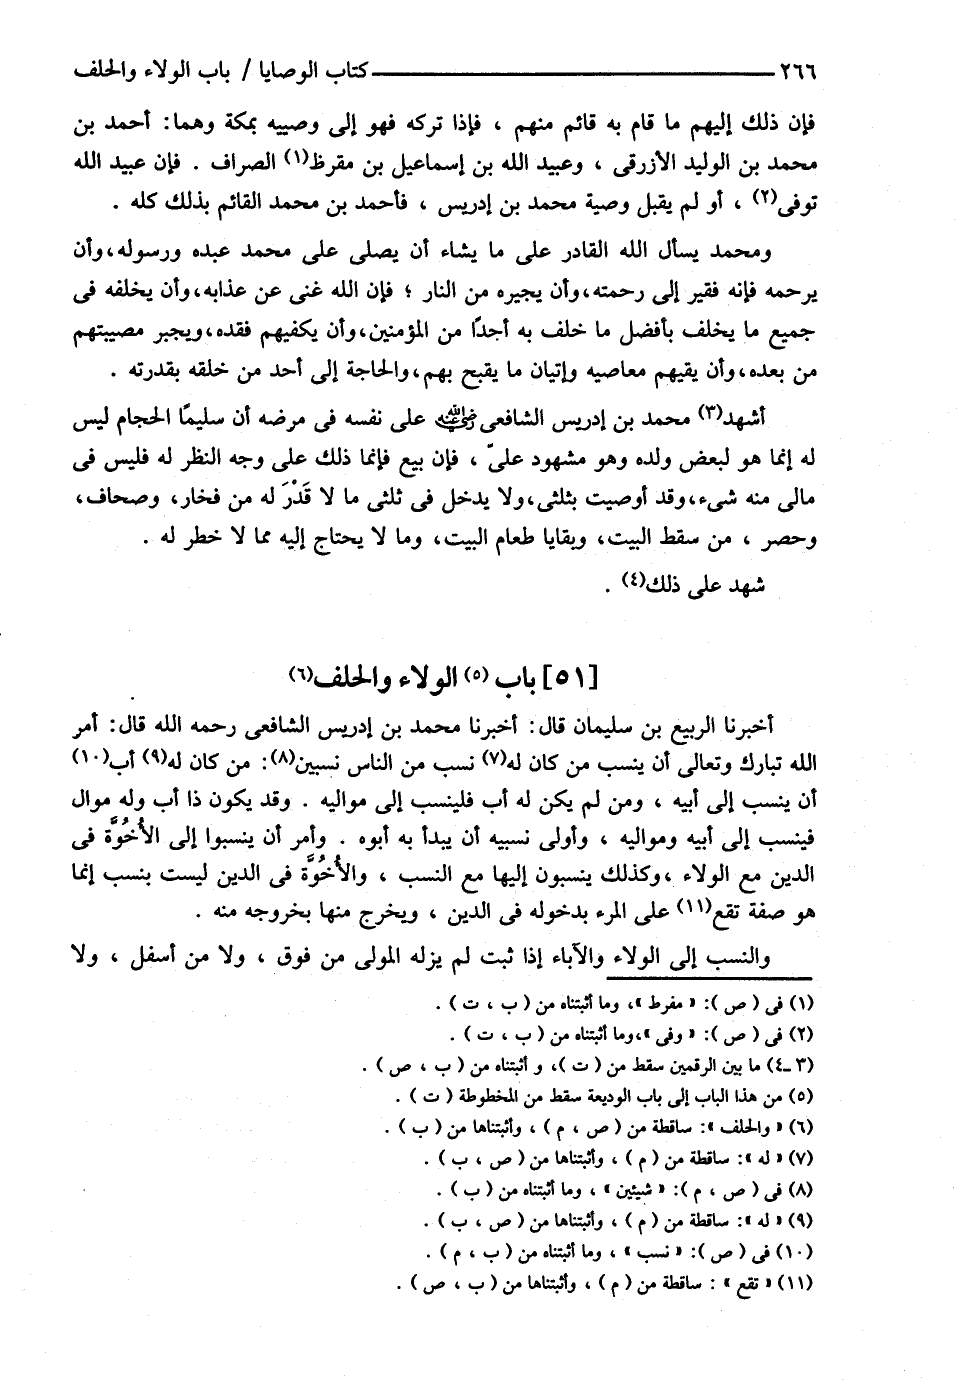 ٢٦٦ ــــــــــــــــــــــــــــــــ كتاب الوصايا / باب الولاء والحلف
فإن ذلك إليهم ما قام به قائم منهم ، فإذا تركه فهو إلى وصييه بمكة وهما: أحمد بن
محمد بن الوليد الأزرقى ، وعبيد الله بن إسماعيل بن مقرظ(١) الصراف . فإن عبيد الله
توفى(٢) ، أو لم يقبل وصية محمد بن إدريس ، فأحمد بن محمد القائم بذلك كله .
ومحمد يسأل الله القادر على ما يشاء أن يصلى على محمد عبده ورسوله،وأن
يرحمه فإنه فقير إلى رحمته،وأن يجيره من النار ؛ فإن الله غنى عن عذابه،وأن يخلفه فى
جميع ما يخلف بأفضل ما خلف به أحدًا من المؤمنين،وأن يكفيهم فقده،ويجبر مصيبتهم
من بعده،وأن يقيهم معاصيه وإتيان ما يقبح بهم،والحاجة إلى أحد من خلقه بقدرته .
أشهد(٣) محمد بن إدريس الشافعى رضي الله عنه على نفسه فى مرضه أن سليمًا الحجام ليس
له إنما هو لبعض ولده وهو مشهود علىّ ، فإن بيع فإنما ذلك على وجه النظر له فليس فى
مالى منه شىء،وقد أوصيت بثلثى،ولا يدخل فى ثلثى ما لا قَدْرَ له من فخار، وصحاف،
وحصر ، من سقط البيت، وبقايا طعام البيت، وما لا يحتاج إليه مما لا خطر له .
شهد على ذلك(٤) .
[٥١] باب (٥) الولاء والحلف(٦)
أخبرنا الربيع بن سليمان قال: أخبرنا محمد بن إدريس الشافعى رحمه الله قال: أمر
الله تبارك وتعالى أن ينسب من كان له(٧) نسب من الناس نسبين(٨): من كان له(٩) أب(١٠)
أن ينسب إلى أبيه ، ومن لم يكن له أب فلينسب إلى مواليه . وقد يكون ذا أب وله موال
فينسب إلى أبيه ومواليه ، وأولى نسبيه أن يبدأ به أبوه . وأمر أن ينسبوا إلى الأُخُوَّة فى
الدين مع الولاء ،وكذلك ينسبون إليها مع النسب ، والأُخُوَّة فى الدين ليست بنسب إنما
هو صفة تقع(١١) على المرء بدخوله فى الدين ، ويخرج منها بخروجه منه .
والنسب إلى الولاء والآباء إذا ثبت لم يزله المولى من فوق ، ولا من أسفل ، ولا
(١) فى ( ص ): « مفرط »، وما أثبتناه من ( ب ، ت ) .
(٢) فى ( ص ): « وفى »،وما أثبتناه من ( ب ، ت ) .
(٣ ـ٤) ما بين الرقمين سقط من ( ت )، و أثبتناه من ( ب ، ص ) .
(٥) من هذا الباب إلى باب الوديعة سقط من المخطوطة ( ت ) .
(٦) « والحلف »: ساقطة من ( ص ، م ) ، وأثبتناها من ( ب ) .
(٧) « له »: ساقطة من ( م ) ، وأثبتناها من ( ص ، ب ) .
(٨) فى ( ص ، م ): « شيئين » ، وما أثبتناه من ( ب ) .
(٩) « له »: ساقطة من ( م ) ، وأثبتناها من ( ص ، ب ) .
(١٠) فى ( ص ): « نسب » ، وما أثبتناه من ( ب ، م ) .
(١١) « تقع » : ساقطة من ( م ) ، وأثبتناها من ( ب ، ص ) .